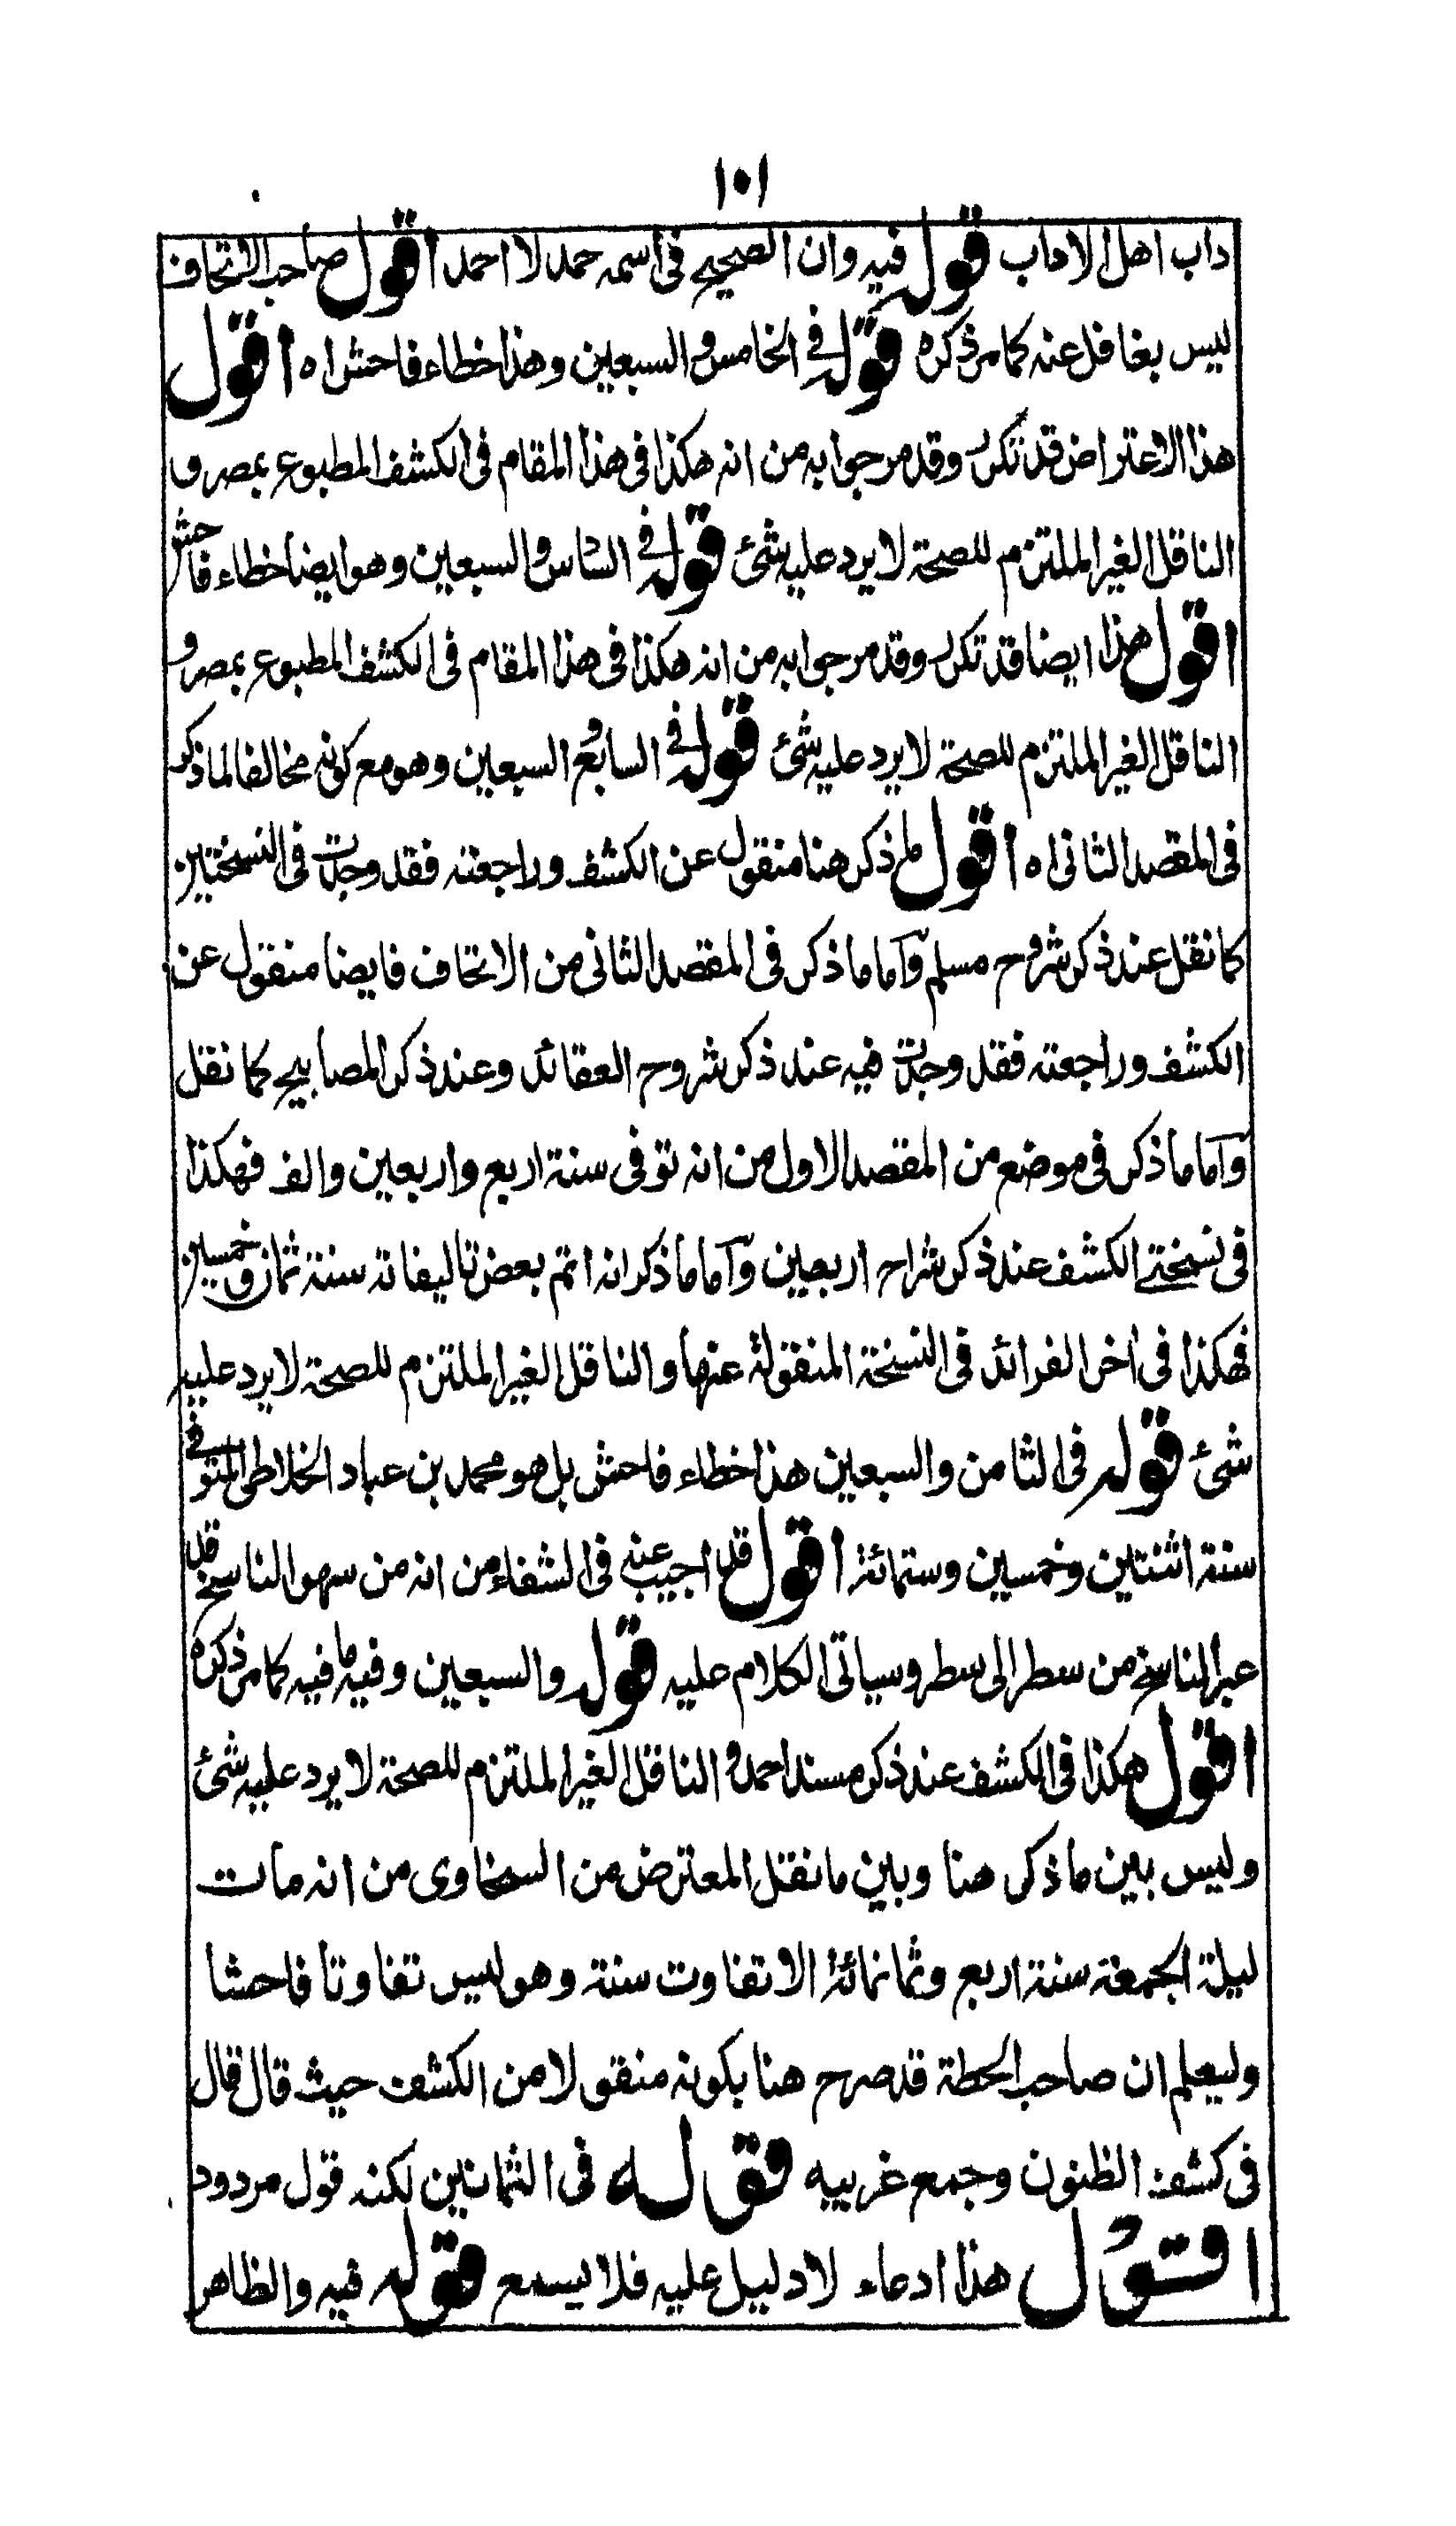 ١٠١
داب اهل الاداب قوله فيه وان الصحيح فى اسمه حمد لا احمد اقول صاحب الاتحاف
ليس بغافل عنه كما مر ذكره قوله فى الخامس والسبعين وهذا خطاء فاحش اه اقول
هذا الاعتراض قد تكرر وقد مر جوابه من انه هكذا فى هذا المقام فى الكشف المطبوع بمصر و
الناقل الغير الملتزم للصحة لا يرد عليه شئ قوله فى السادس والسبعين وهو ايضا خطاء فاحش
اقول هذا ايضا قد تكرر وقد مر جوابه من انه هكذا فى هذا المقام فى الكشف المطبوع بمصر و
الناقل الغير الملتزم للصحة لا يرد عليه شئ قوله فى السابع والسبعين وهو مع كونه مخالفا لما ذكر
فى المقصد الثانى اه اقول ما ذكر هنا منقول عن الكشف وراجعته فقد وجدت فى النسختين
كما نقل عند ذكر شروح مسلم وآما ما ذكر فى المقصد الثانى من الاتحاف فايضا منقول عن
الكشف وراجعته فقد وجدت فيه عند ذكر شروح العقائد وعند ذكر المصابيح كما نقل
وآما ما ذكر فى موضع من المقصد الاول من انه توفى سنة اربع واربعين والف فهكذا
فى نسختى الكشف عند ذكر شراح اربعين وآما ما ذكر انه اتم بعض تاليفاته سنة ثمان وخمسين
فهكذا فى اخر الفرائد فى النسخة المنقولة عنها والناقل الغير الملتزم للصحة لا يرد عليه
شئ قوله فى الثامن والسبعين هذا خطاء فاحش بل هو محمد بن عباد الخلاطى المتوفى
سنة اثنتين وخمسين وستمائة اقول قد اجيب عنه فى الشفاء من انه من سهو الناسخ قد
عبر الناسخ من سطر الى سطر وسياتى الكلام عليه قوله والسبعين وفيه ما فيه كما مر ذكره
اقول هكذا فى الكشف عند ذكر مسند احمد والناقل الغير الملتزم للصحة لا يرد عليه شئ
وليس بين ما ذكر هنا وبين ما نقل المعترض من السخاوى من انه مات
ليلة الجمعة سنة اربع وثمانمائة الا تفاوت سنة وهو ليس تفاوتا فاحشا
وليعلم ان صاحب الحطة قد صرح هنا بكونه منقولا من الكشف حيث قال قال
فى كشف الظنون وجمع غريبيه قوله فى الثمانين لكنه قول مردود
اقول هذا ادعاء لا دليل عليه فلا يسمع قوله فيه والظاهر